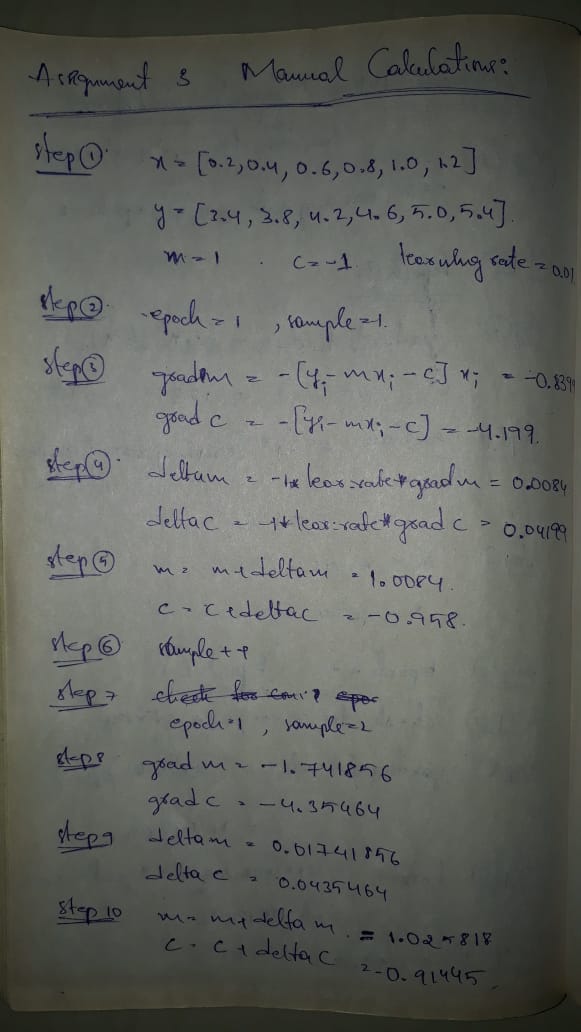 Assignment 3 Manual Calculations:
step① x = [0.2, 0.4, 0.6, 0.8, 1.0, 1.2]
y = [3.4, 3.8, 4.2, 4.6, 5.0, 5.4]
m = 1 c = -1 learning rate = 0.01
step② epoch = 1, sample = 1.
step③ grad m = -[yi - mxi - c] xi = -0.839
grad c = -[yi - mxi - c] = -4.199.
step④ deltam = -1* lear.rate*grad m = 0.0084
deltac = -1* lear.rate*grad c = 0.04199
step⑤ m = m+deltam = 1.0084.
c = c+deltac = -0.958.
step⑥ sample++
step 7 check for epoc
epoch=1, sample=2
step 8 grad m = -1.741856
grad c = -4.35464
step 9 delta m = 0.01741856
delta c = 0.0435464
step 10 m = m+delta m = 1.025818
c = c+deltac = -0.91445